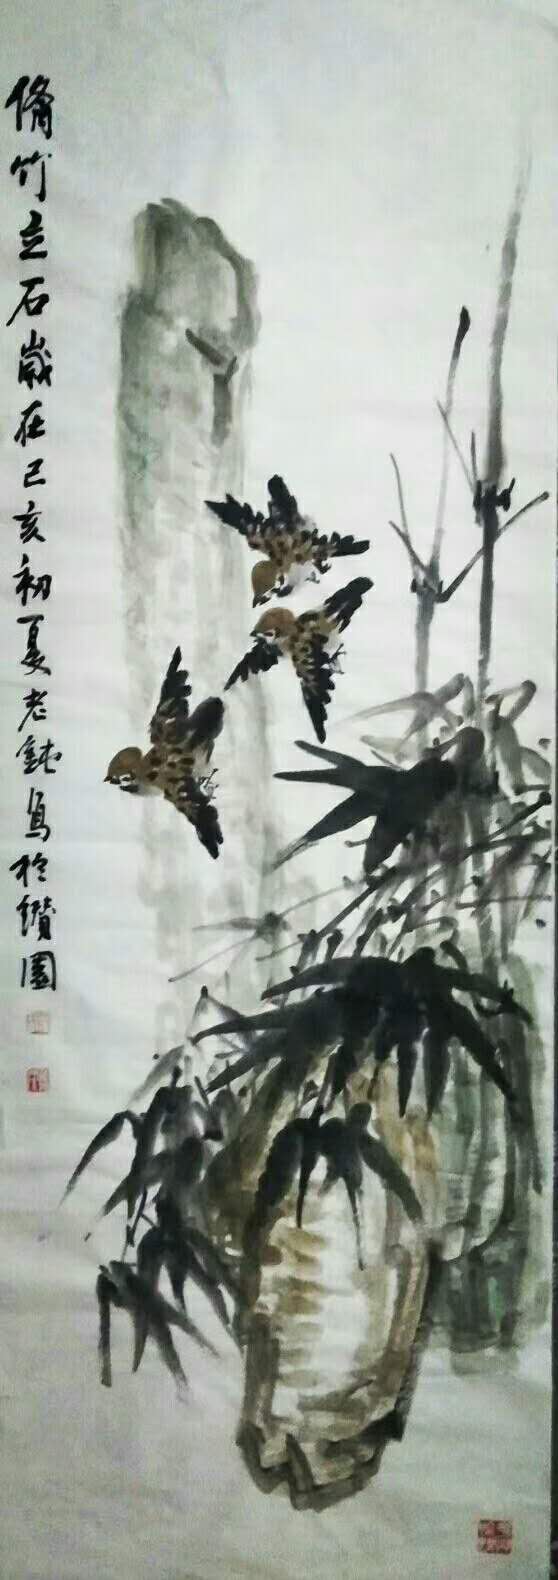 脩竹立石歲在己亥初夏老鈍寫於鑽園